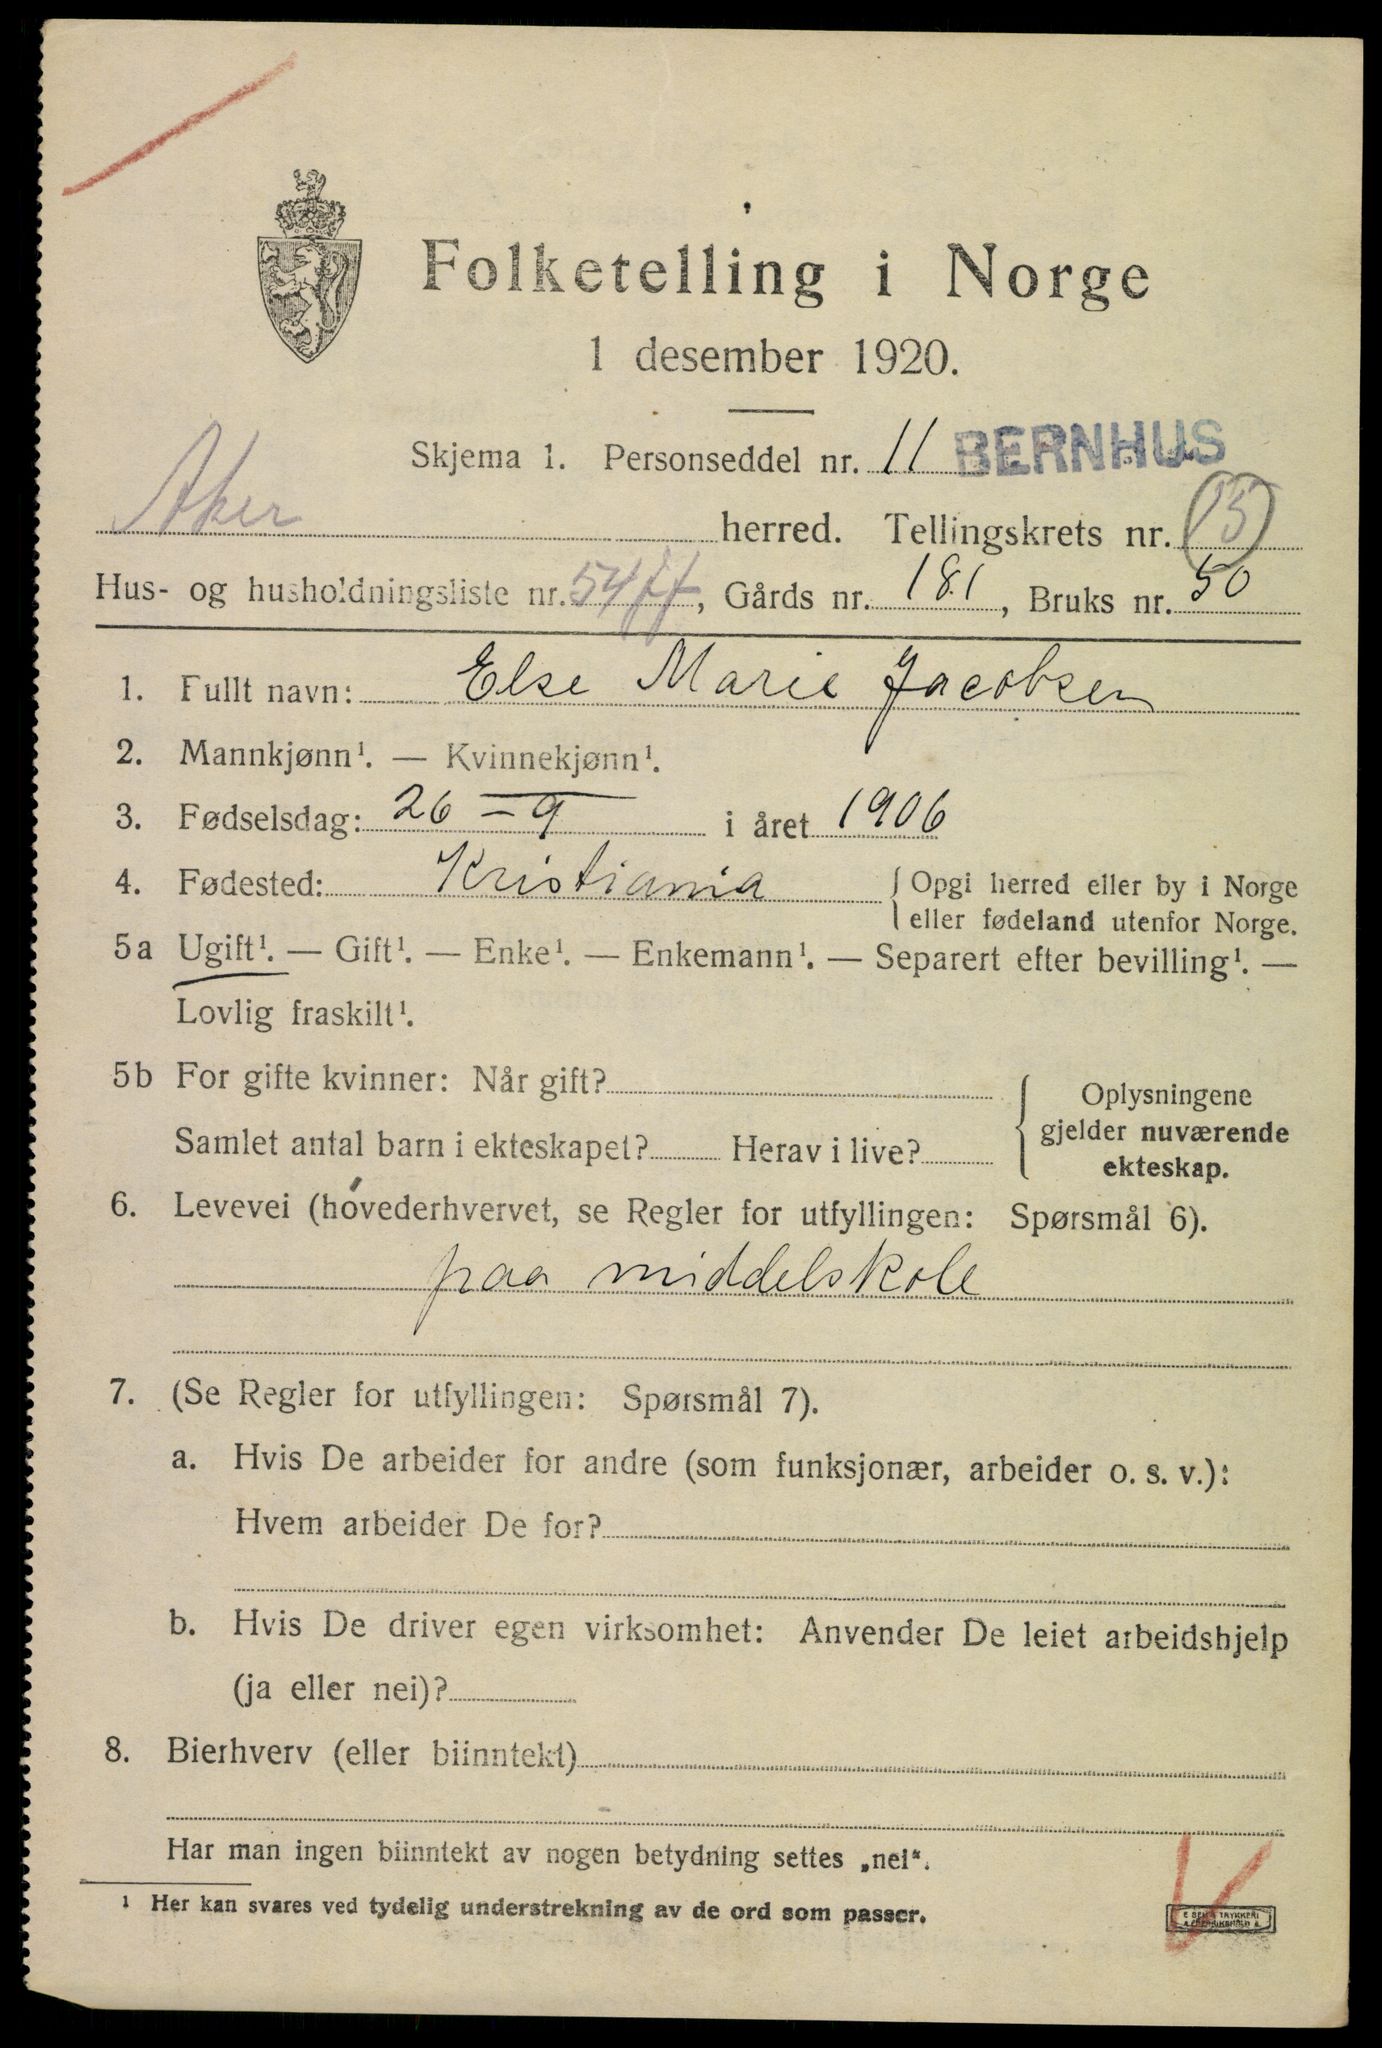 Folketelling i Norge
1 desember 1920.
Skjema 1. Personseddel nr. 11 BERNHUS
Aker herred. Tellingskrets nr. 15
Hus- og husholdningsliste nr. 54, Gårds nr. 181, Bruks nr. 50
1. Fullt navn: Else Marie Jacobsen
2. Mannkjønn¹. — Kvinnekjønn¹.
3. Fødselsdag: 26 - 9 i året 1906
4. Fødested: Kristiania { Opgi herred eller by i Norge
eller fødeland utenfor Norge.
5a Ugift¹. — Gift¹. — Enke¹. — Enkemann¹. — Separert efter bevilling¹. —
Lovlig fraskilt¹.
5b For gifte kvinner: Når gift? { Oplysningene
gjelder nuværende
Samlet antal barn i ekteskapet? Herav i live?
ekteskap.
6. Levevei (hovederhvervet, se Regler for utfyllingen: Spørsmål 6).
paa middelskole
7. (Se Regler for utfyllingen: Spørsmål 7).
a. Hvis De arbeider for andre (som funksjonær, arbeider o. s. v.):
Hvem arbeider De for?
b. Hvis De driver egen virksomhet: Anvender De leiet arbeidshjelp
(ja eller nei)?
8. Bierhverv (eller biinntekt)
Har man ingen biinntekt av nogen betydning settes „nei“.
¹ Her kan svares ved tydelig understrekning av de ord som passer.